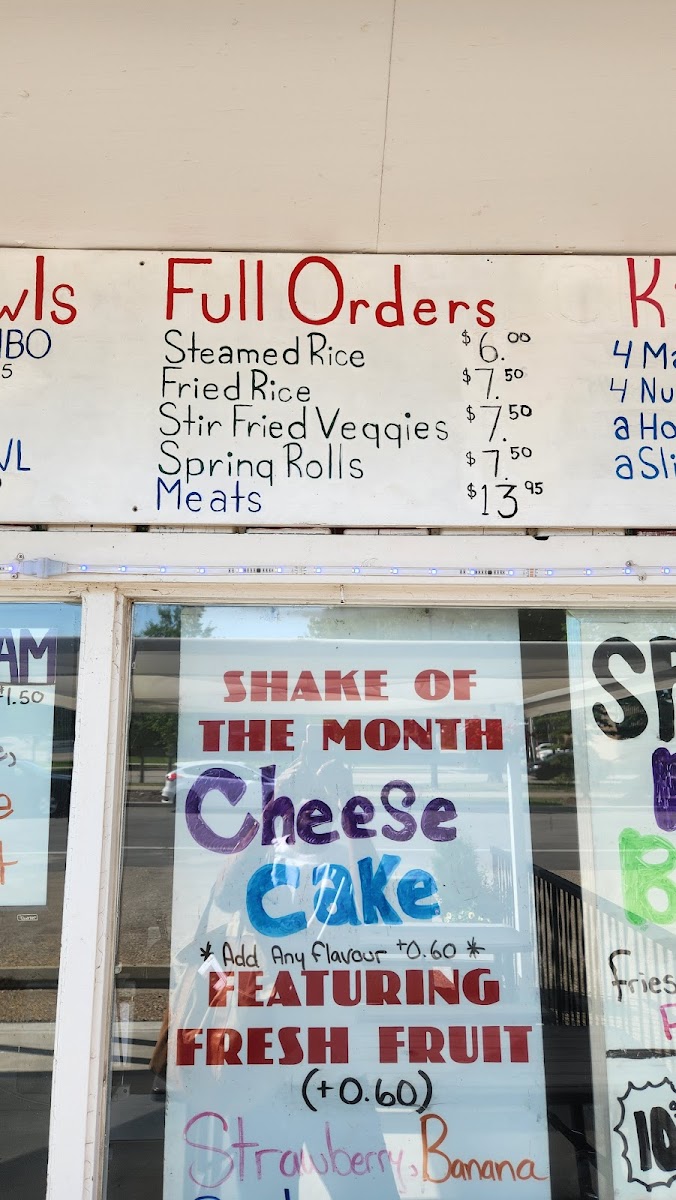 Full Orders
Steamed Rice $6.00
Fried Rice $7.50
Stir Fried Veggies $7.50
Spring Rolls $7.50
Meats $13.95
SHAKE OF
THE MONTH
Cheese
Cake
*Add Any Flavour +0.60*
FEATURING
FRESH FRUIT
(+0.60)
Strawberry, Banana
1.50
4
4
a
a
fries
10